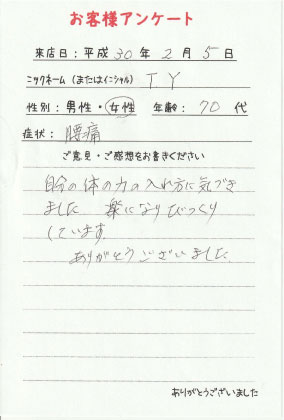 お客様アンケート
来店日：平成 30 年 2 月 5 日
ニックネーム（またはイニシャル） T Y
性別：男性・女性 年齢：70 代
症状：腰痛
ご意見・ご感想をお書きください
自分の体の力の入れ方に気づき
ました 楽になりびっくり
しています。
ありがとうございました
ありがとうございました